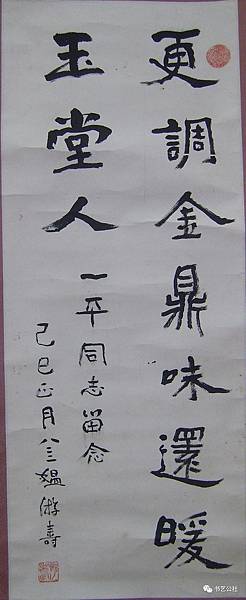 更調金鼎味還暖
玉堂人
一平同志留念
己巳正月八三媼游壽
书艺公社